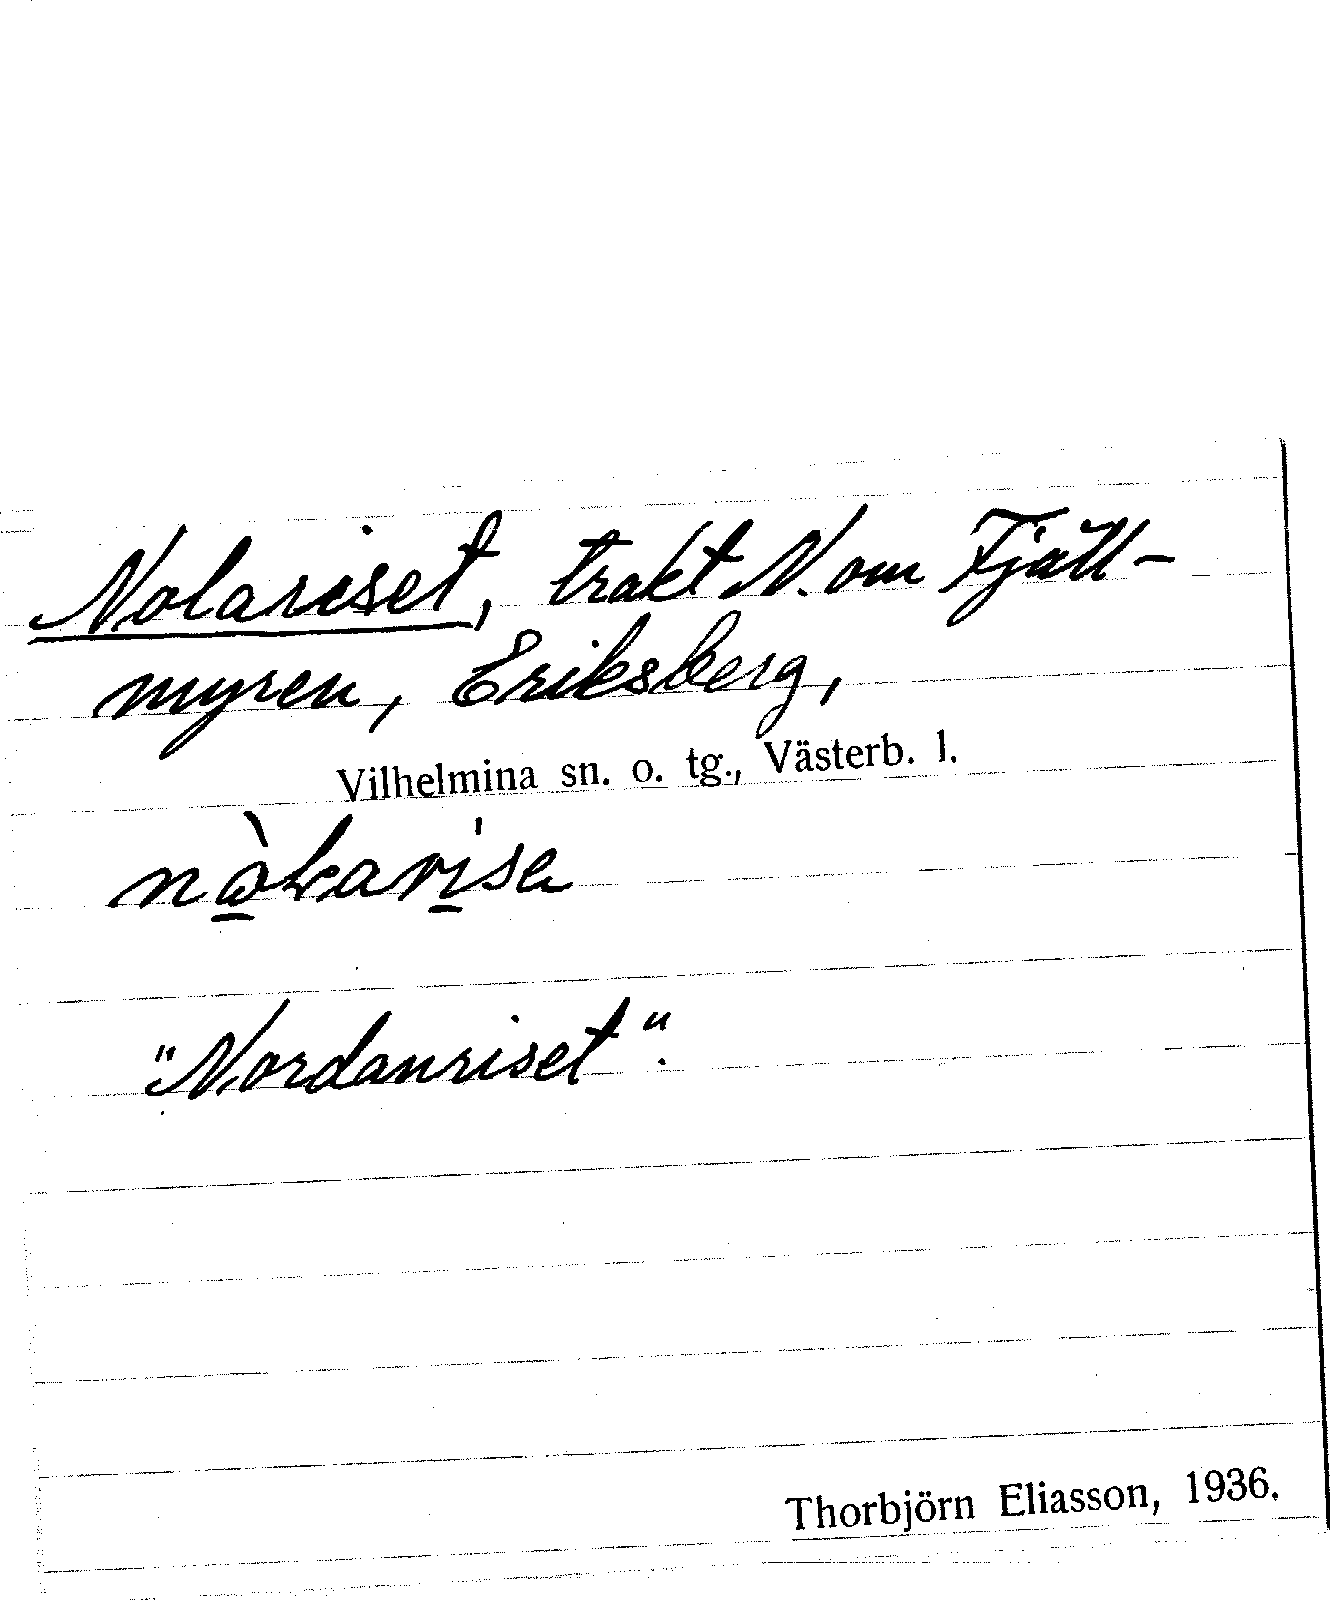 Nolariset, trakt N. om Fjäll-
myren, Eriksberg,
Vilhelmina sn. o. tg., Västerb. l.
"Nordanriset".
Thorbjörn Eliasson, 1936.